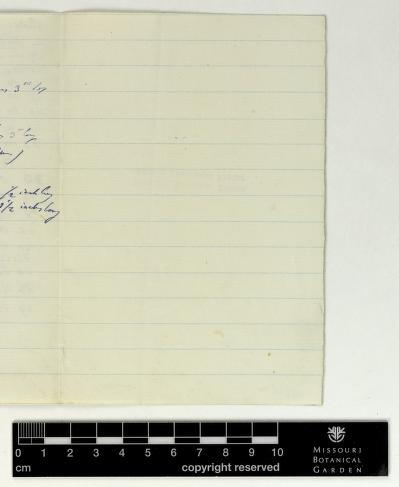 3
5 long
1/2 inch long
1/2 inches long
0 1 2 3 4 5 6 7 8 9 10
cm
copyright reserved
MISSOURI
BOTANICAL
GARDEN